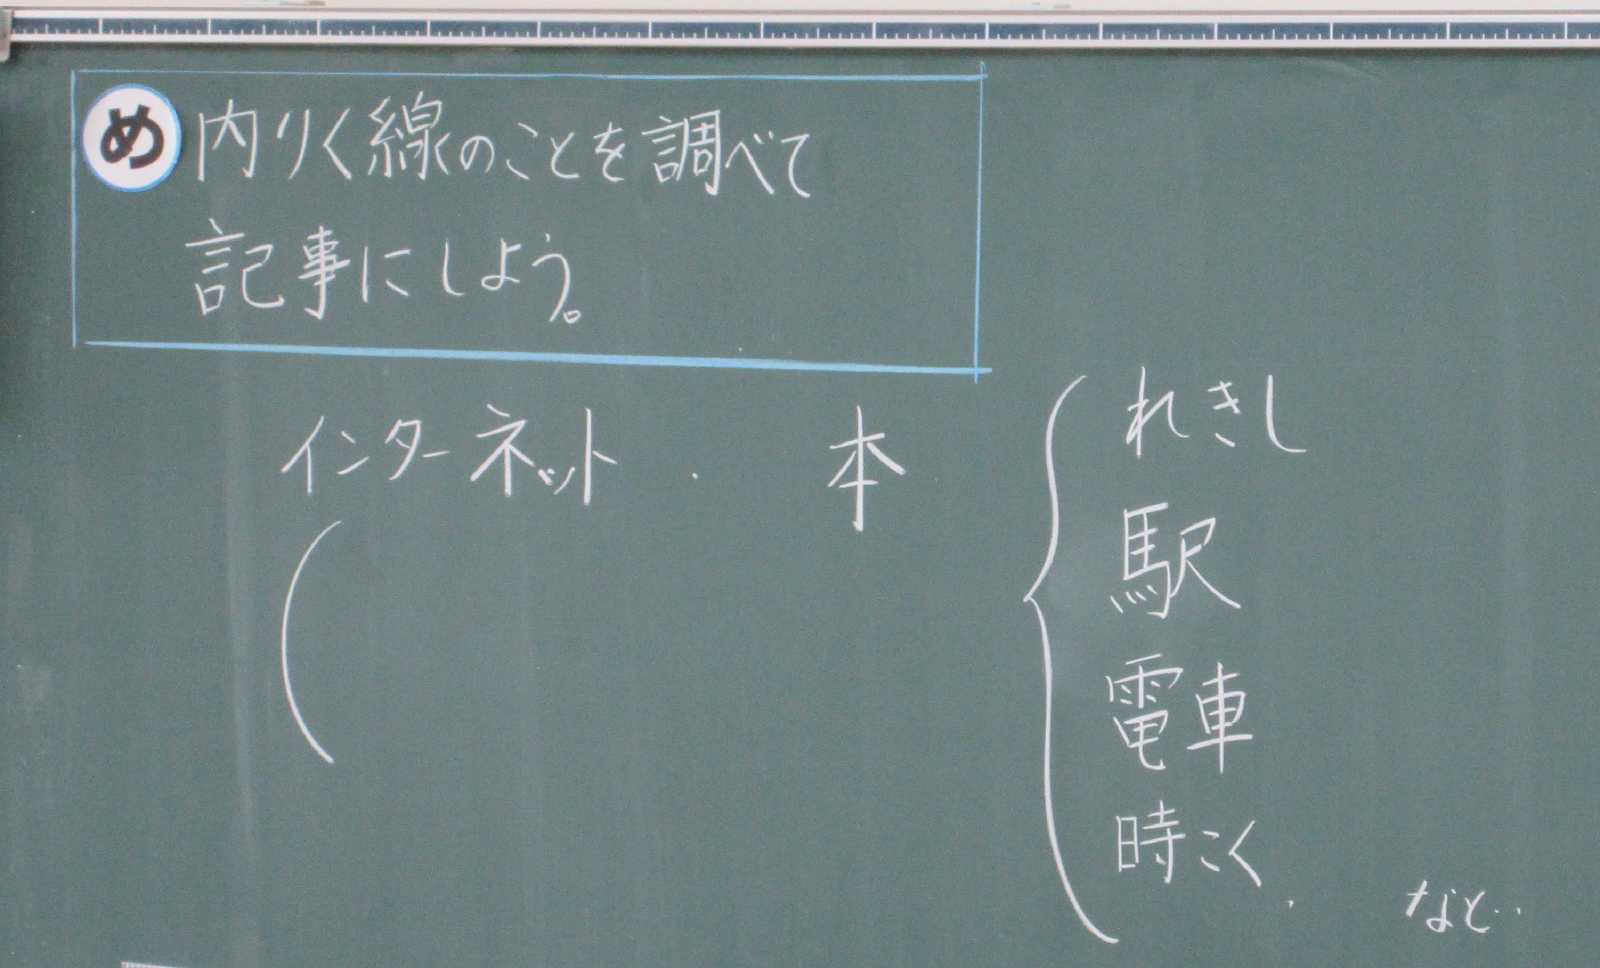 め 内りく線のことを調べて
記事にしよう。
インターネット ・ 本
れきし
駅
電車
時こく
など‥